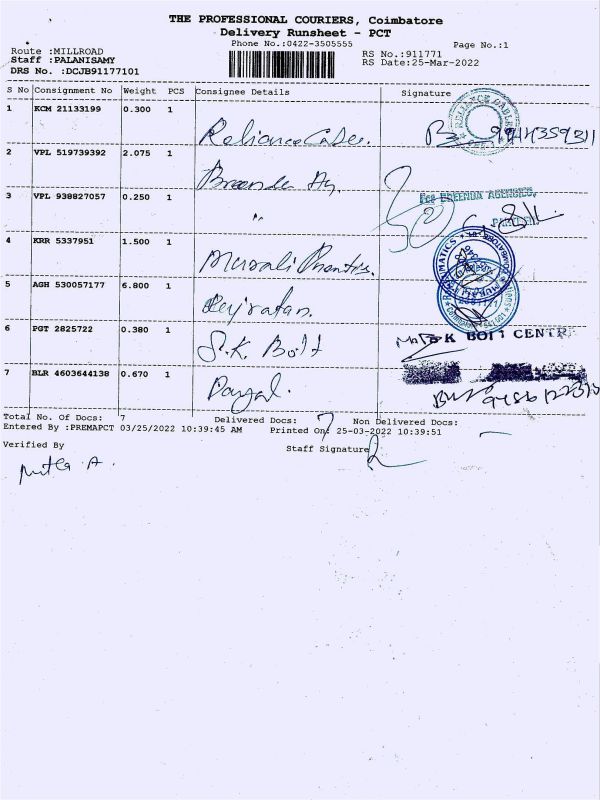 THE PROFESSIONAL COURIERS, Coimbatore
Delivery Runsheet - PCT
Phone No.:0422-3505555
Page No.:1
Route :MILLROAD
Staff :PALANISAMY
DRS No. :DCJB91177101
RS No.:911771
RS Date:25-Mar-2022
S No Consignment No Weight PCS Consignee Details Signature
1 KCM 21133199 0.300 1 Reliance
2 VPL 519739392 2.075 1 Breenda Ag.
3 VPL 938827057 0.250 1 "
For BREENDA AGENCIES,
4 KRR 5337951 1.500 1 Murali
5 AGH 530057177 6.800 1
6 PGT 2825722 0.380 1 S.K. Bolt
K BOLT CENTR
7 BLR 4603644138 0.670 1 Payal.
Total No. Of Docs: 7 Delivered Docs: 7 Non Delivered Docs: –
Entered By :PREMAPCT 03/25/2022 10:39:45 AM Printed On: 25-03-2022 10:39:51
Verified By
Staff Signature